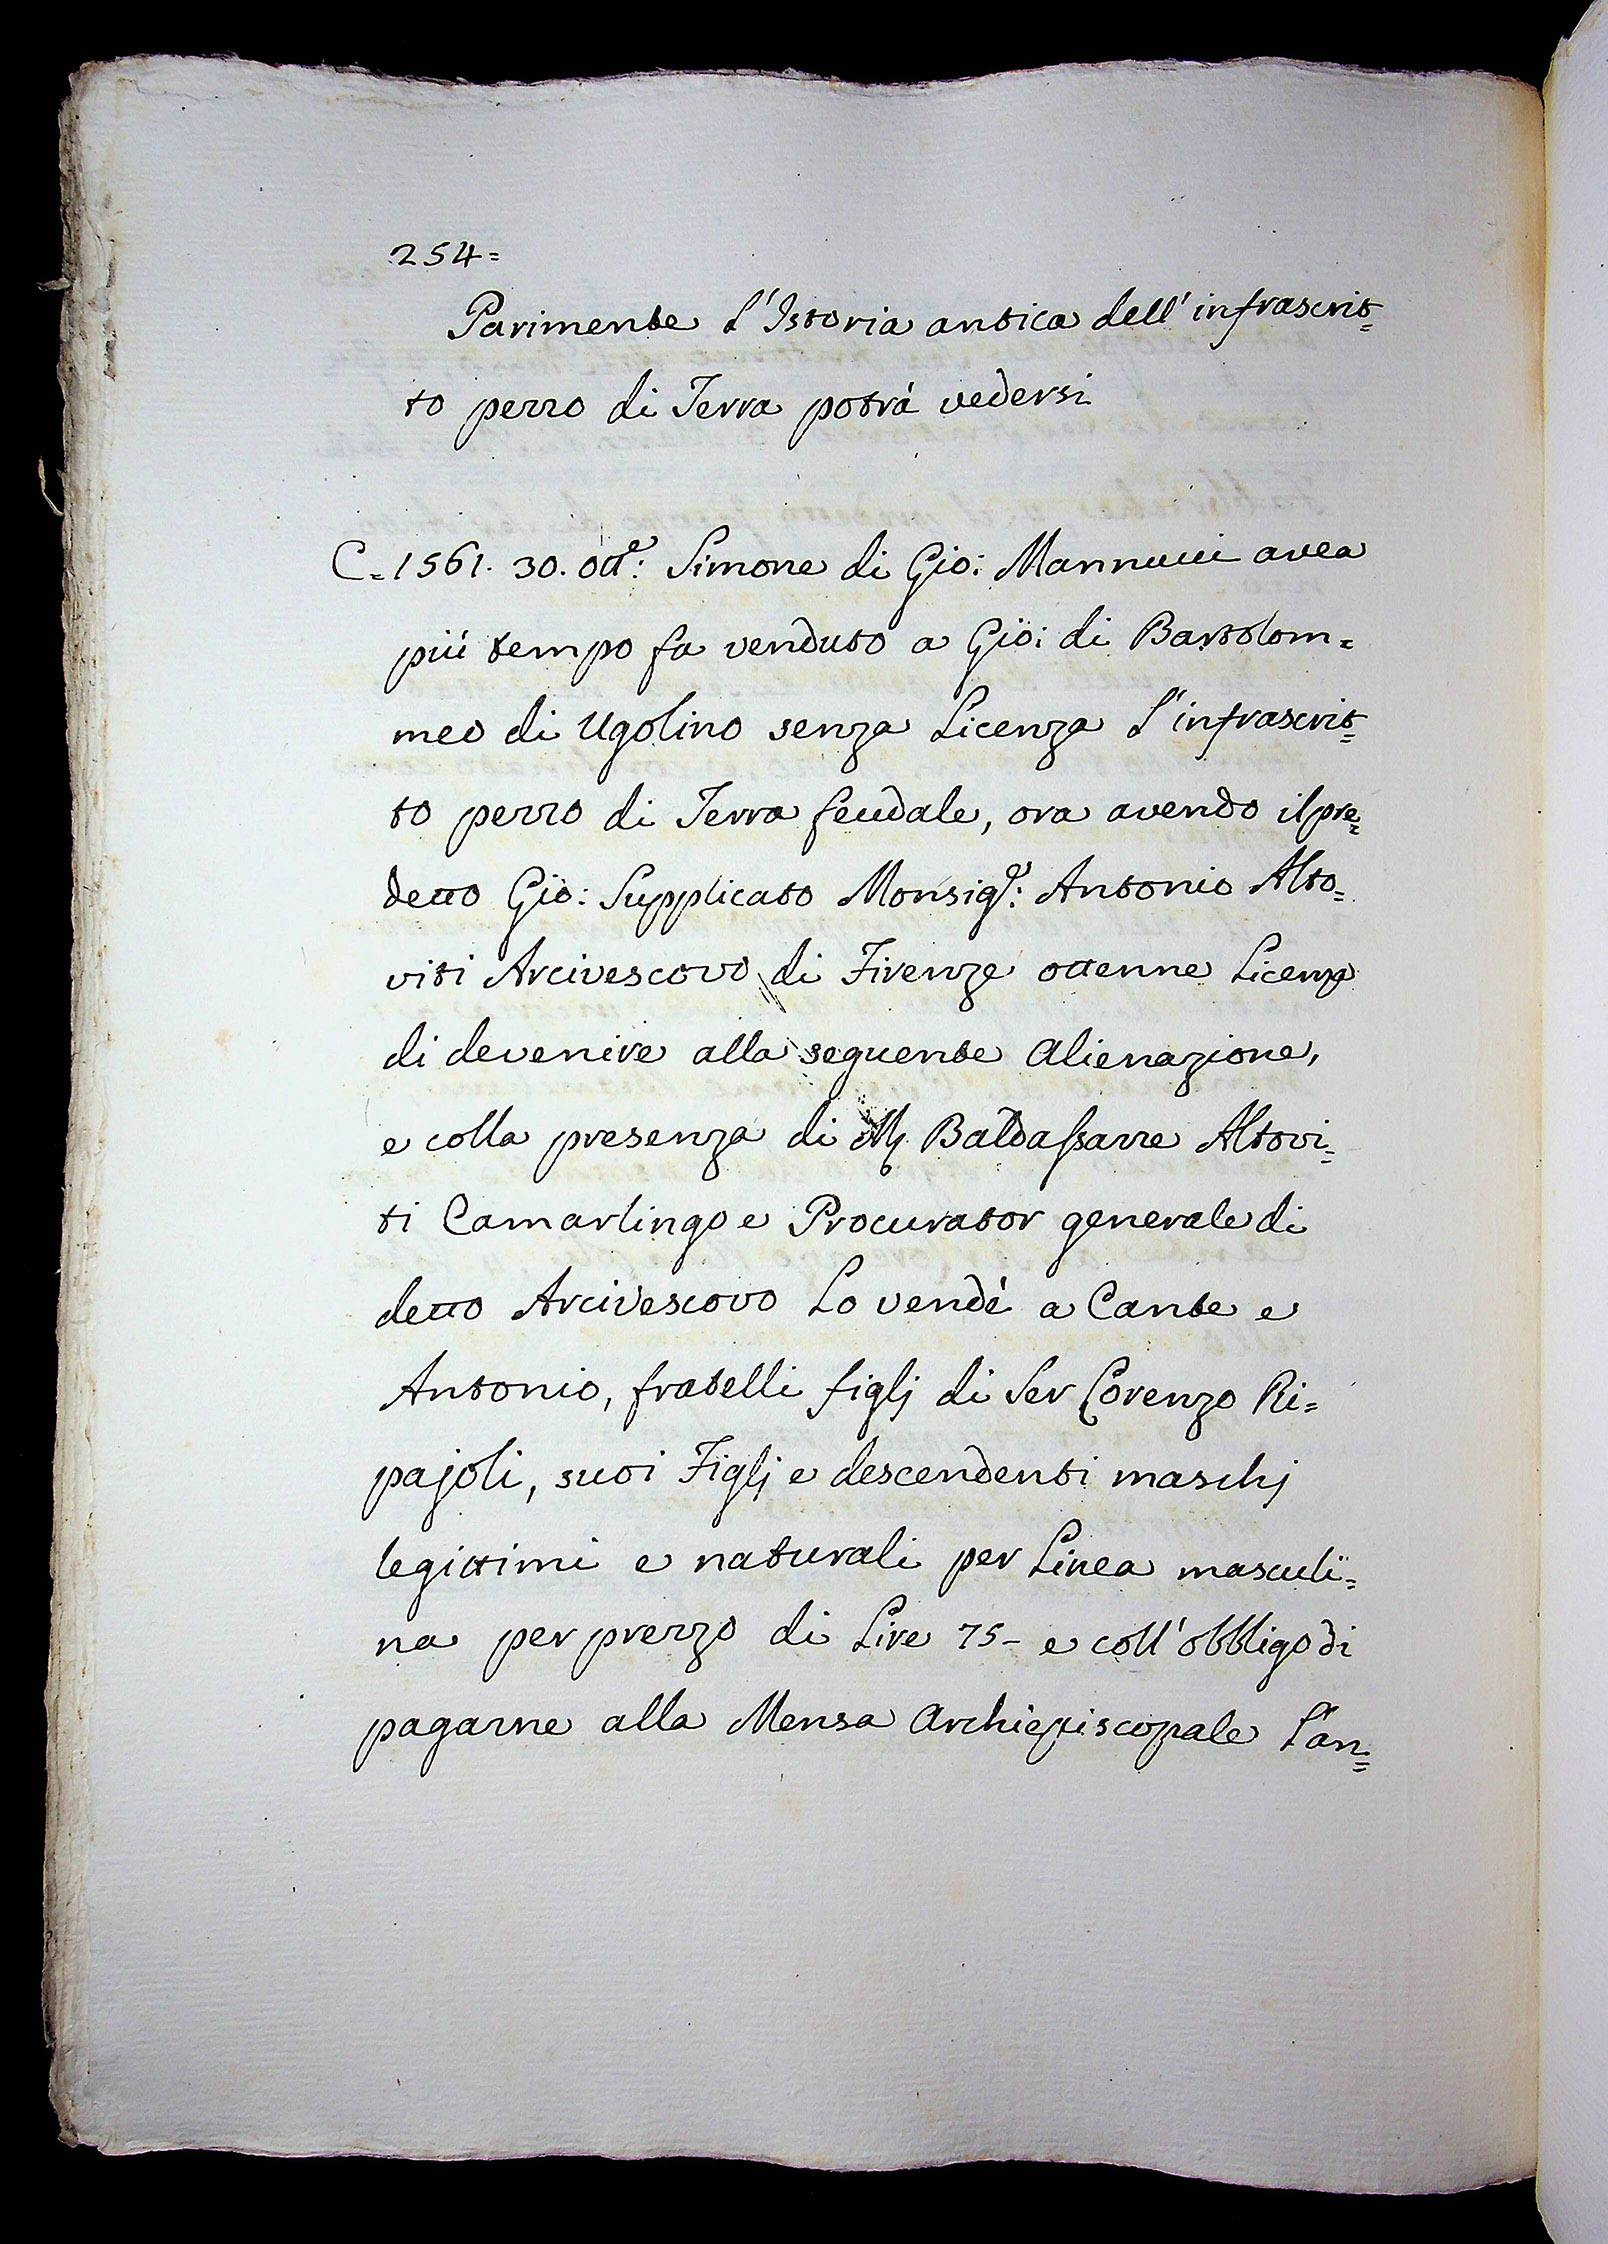 254=
Parimente l'Istoria antica dell'infrascrit=
to pezzo di Terra potrà vedersi
C=1561. 30. Ott.e: Simone di Gio: Mannucci avea
più tempo fa venduto a Gio: di Bartolom=
meo di Ugolino senza Licenza l'infrascrit=
to pezzo di Terra feudale, ora avendo il pre=
detto Gio: Supplicato Monsig.e: Antonio Alto=
viti Arcivescovo di Firenze ottenne Licenza
di devenire alla seguente Alienazione,
e colla presenza di M. Baldassarre Altovi=
ti Camarlingo e Procurator generale di
detto Arcivescovo Lo vendé a Cante e
Antonio, fratelli figlj di Ser Lorenzo Ri=
pajoli, suoi Figlj e descendenti maschj
legittimi e naturali per Linea masculi=
na per prezzo di Lire 75- e coll'obbligo di
pagarne alla Mensa Archiepiscopale l'an=